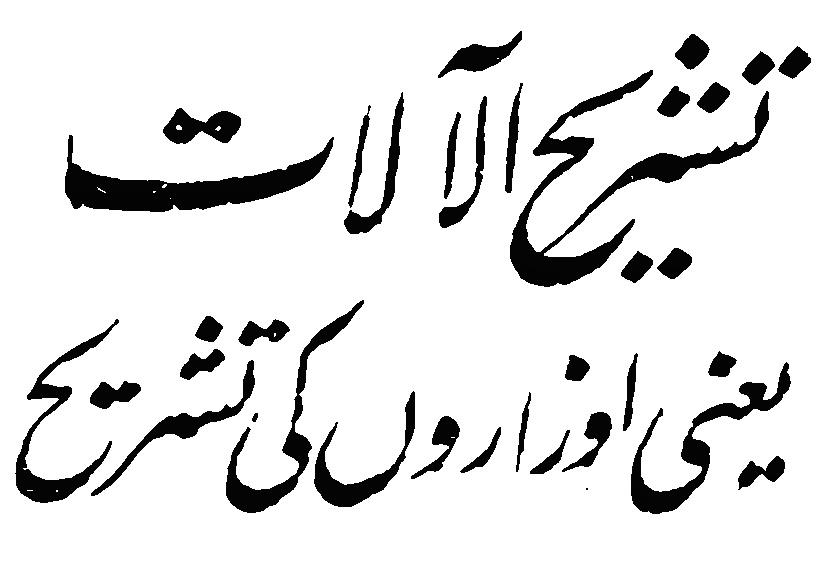 تشریح الآلات
یعنی اوزاروں کی تشریح